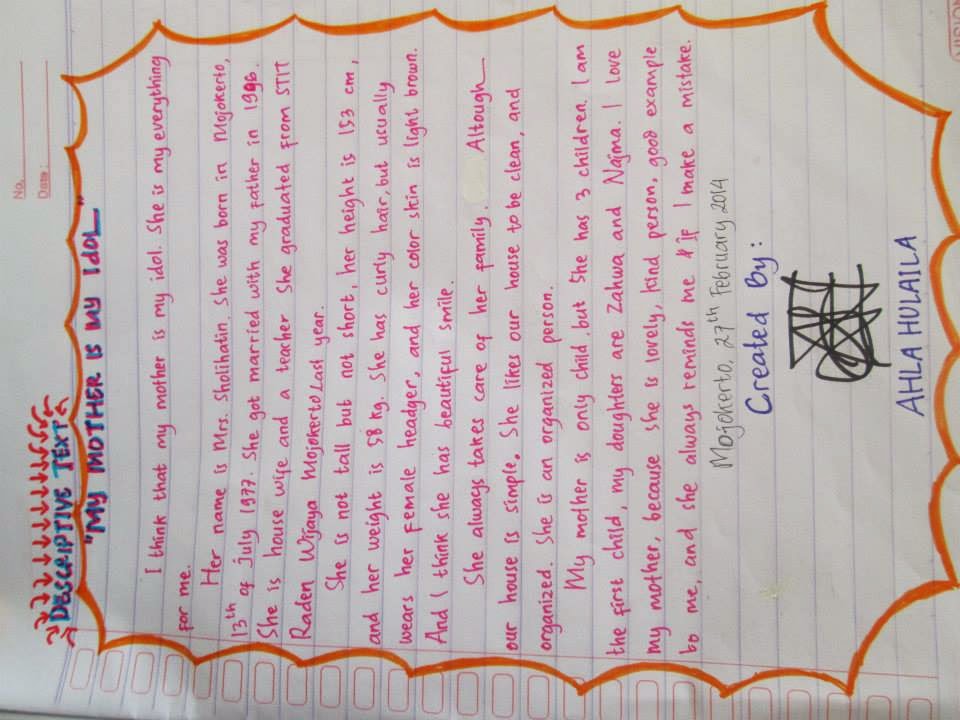 No.
Date:
DESCRIPTIVE TEXT
"MY MOTHER IS MY IDOL"
I think that my mother is my idol. She is my everything
for me.
Her name is Mrs. Sholihatin. She was born in Mojokerto,
13th of july 1977. She got married with my father in 1996.
She is house wife and a teacher. She graduated from STIT
Raden Wijaya Mojokerto Last year.
She is not tall but not short, her height is 153 cm,
and her weight is 58 kg. She has curly hair, but usually
wears her female headger, and her color skin is light brown.
And I think she has beautiful smile.
She always takes care of her family. Altough
our house is simple. She likes our house to be clean, and
organized. She is an organized person.
My mother is only child but She has 3 children. I am
the first child, my doughters are Zahwa and Najma. I love
my mother, because she is lovely, kind person, good example
to me, and she always reminds me if I make a mistake.
Mojokerto, 27th February 2014
Created By:
AHLA HULAILA